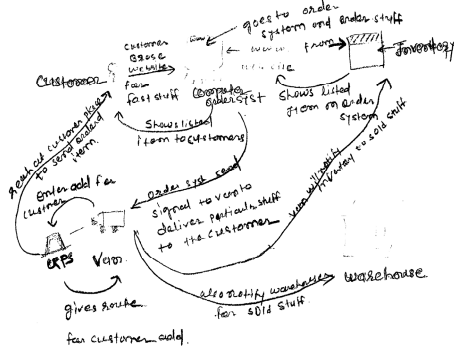 goes to order
system and order stuff
customer
Brose
website
for
fast stuff
www
from
website
Inventory
Customer
Computer
order syst
Shows listed
item on order
system
Shows listed
item to customers
reach out customer place
to send orderd
item.
Enter add for
customer
order syst send
signal to van to
deliver particular stuff
to the customer
van will notify
inventory to sold stuff
GPS
Van
gives route
for customer add.
also notify warehouse
for sold stuff.
warehouse